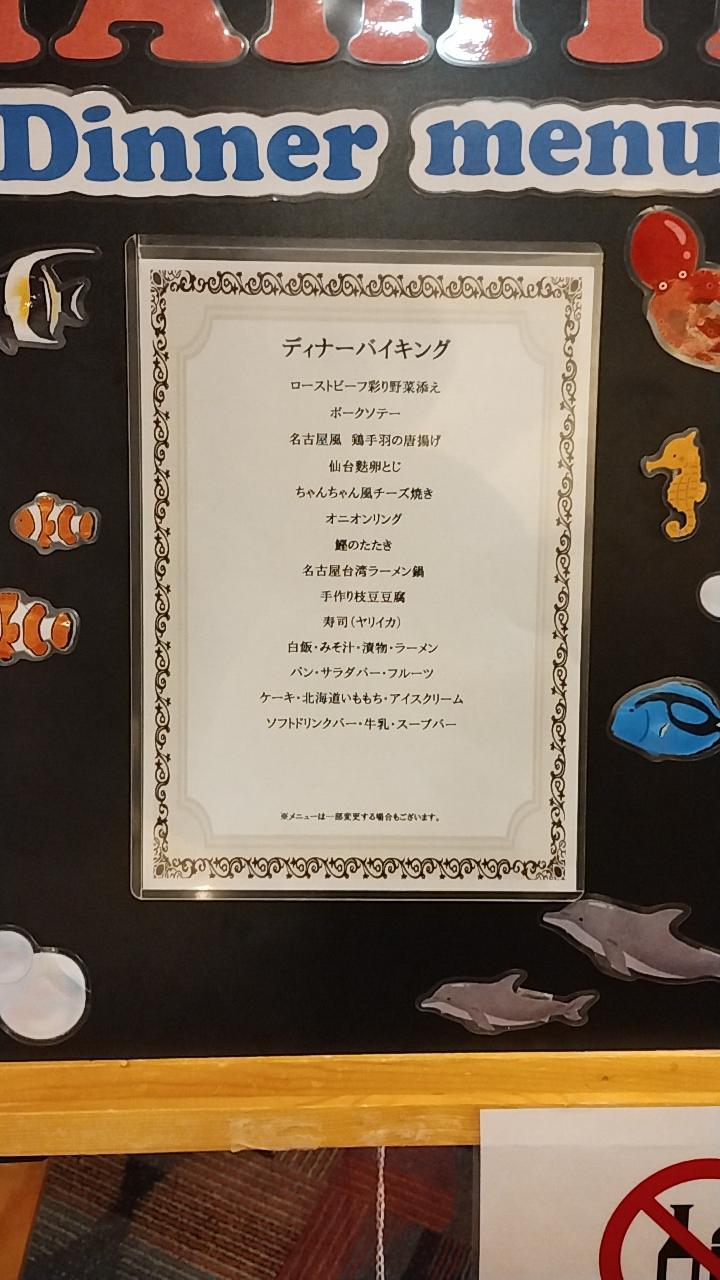 Dinner menu
ディナーバイキング
ローストビーフ彩り野菜添え
ポークソテー
名古屋風 鶏手羽の唐揚げ
仙台麩卵とじ
ちゃんちゃん風チーズ焼き
オニオンリング
鰹のたたき
名古屋台湾ラーメン鍋
手作り枝豆豆腐
寿司(ヤリイカ)
白飯・みそ汁・漬物・ラーメン
パン・サラダバー・フルーツ
ケーキ・北海道いももち・アイスクリーム
ソフトドリンクバー・牛乳・スープバー
※メニューは一部変更する場合もございます。